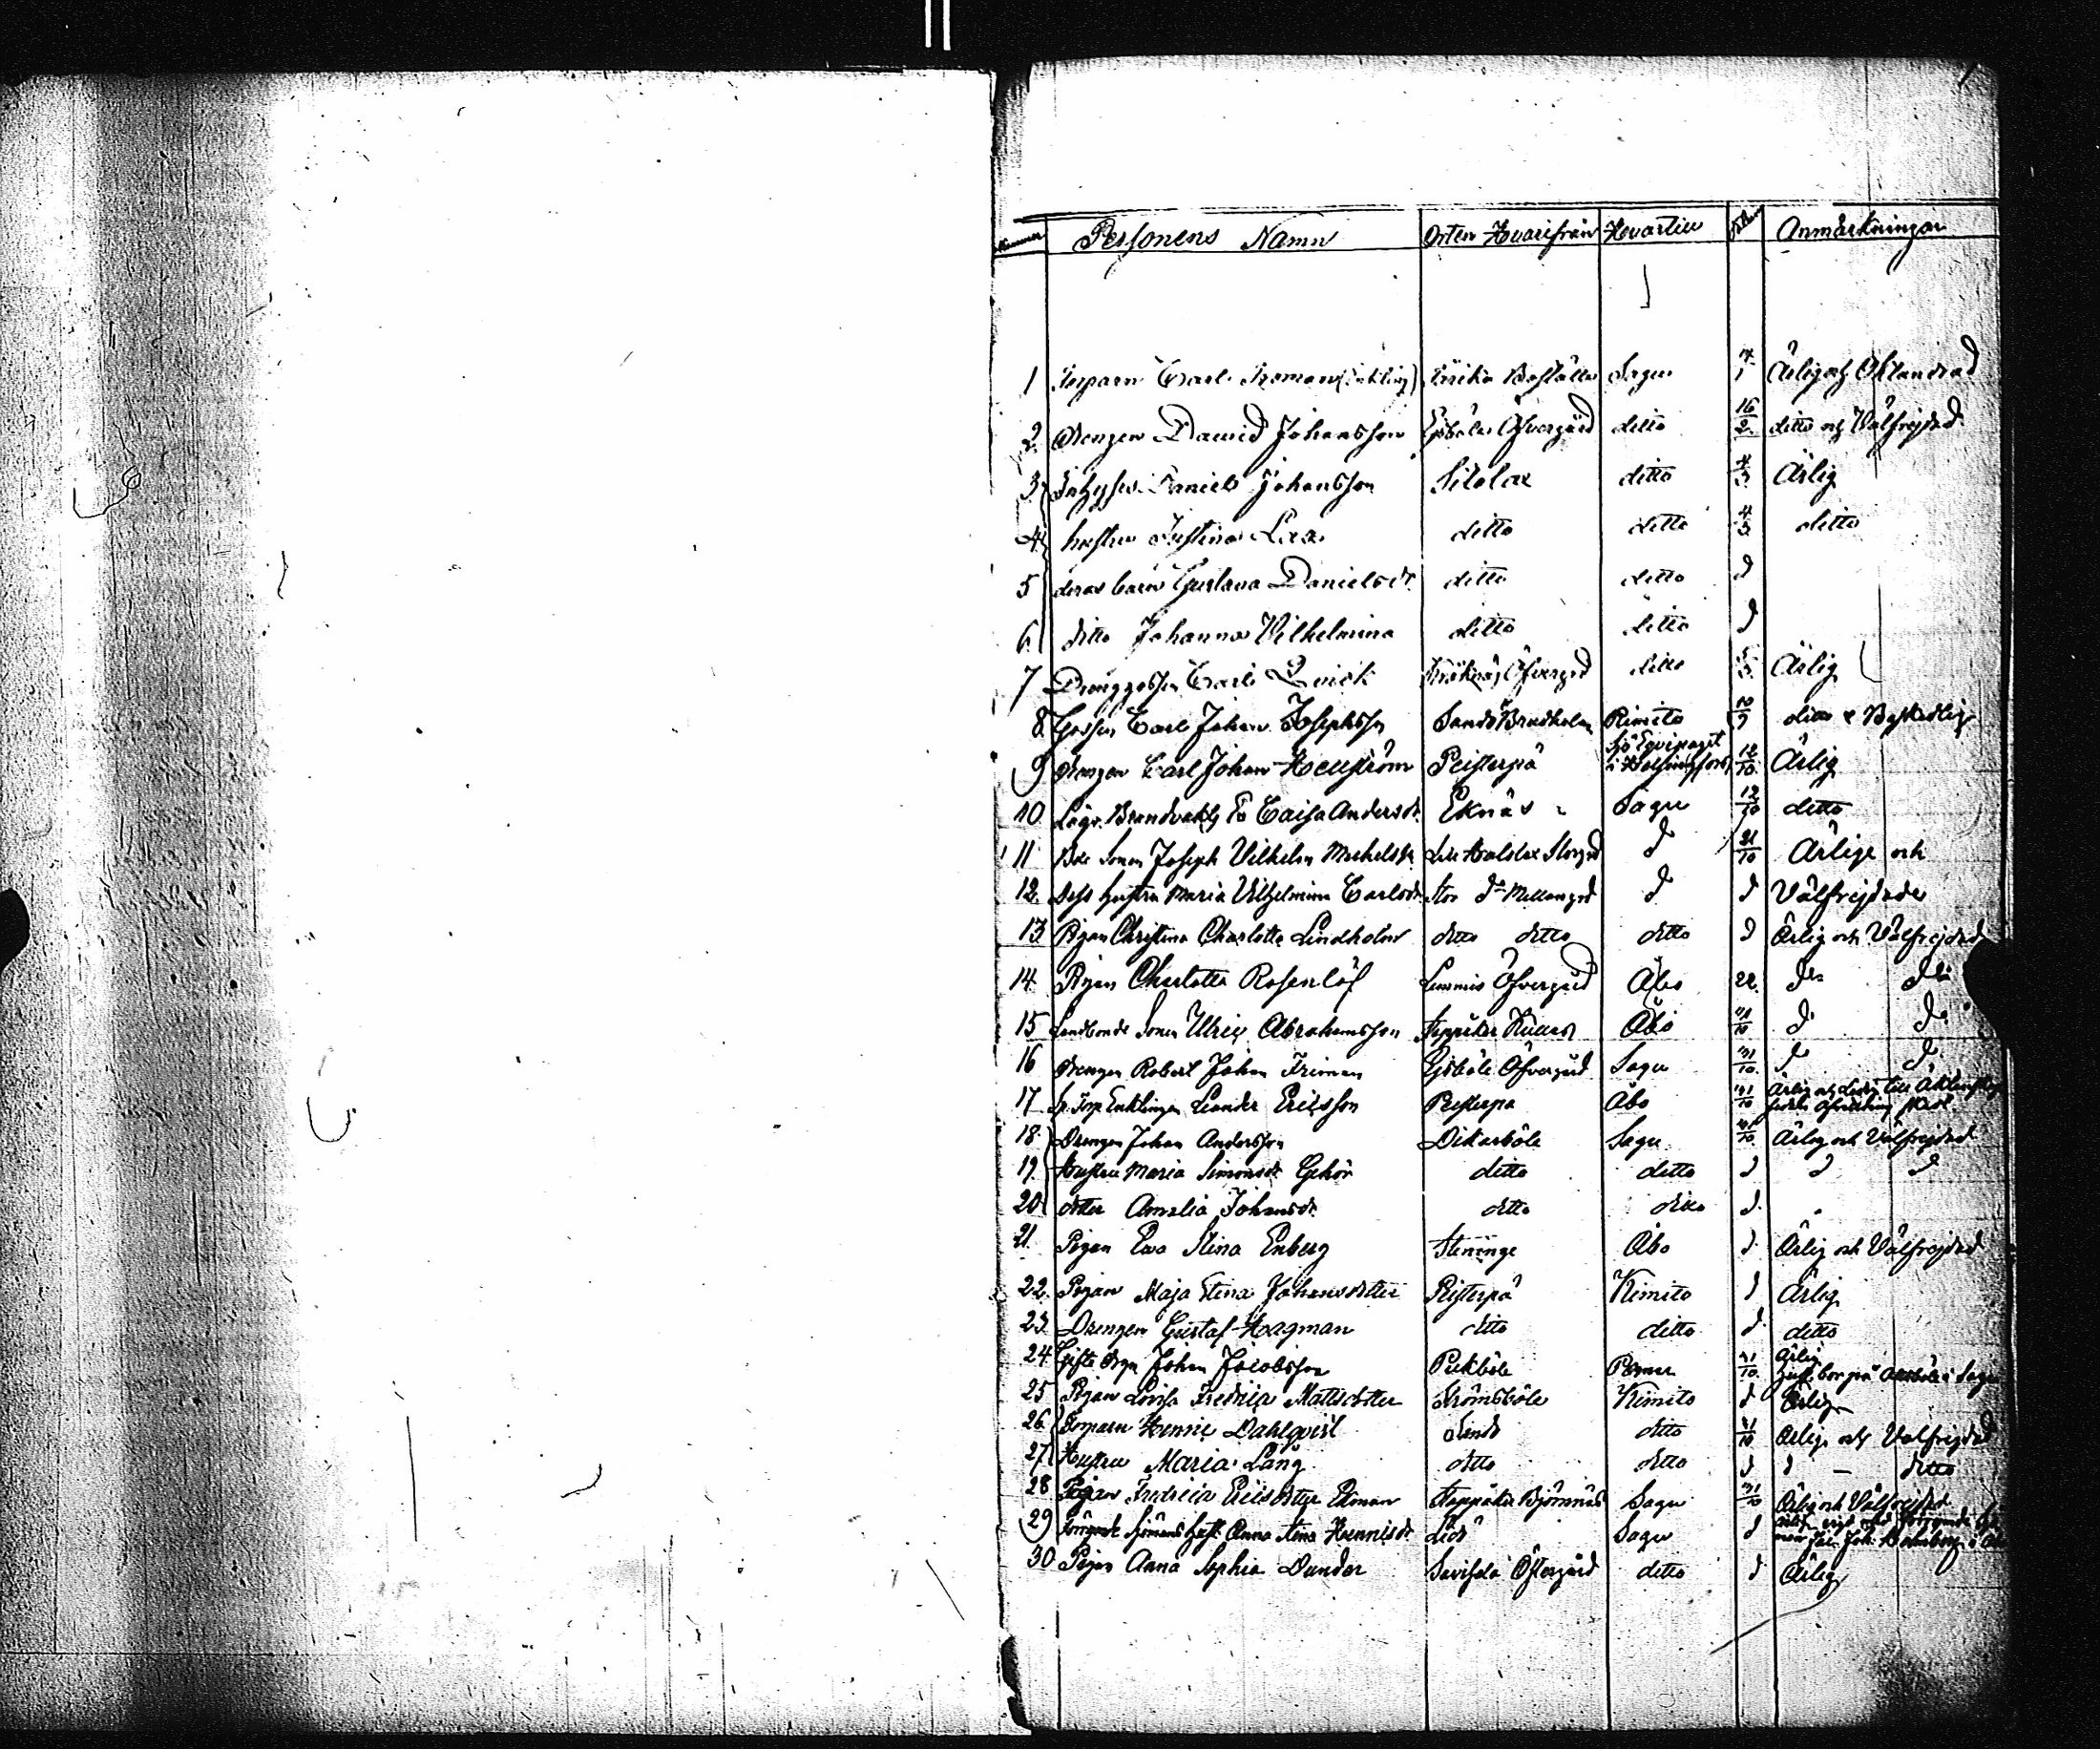 Nummer Personens Namn Orten Hvarifrån Hvartill Anmärkningar
1 Torparn Carl Boställe Sagu 14/1 Ärlig och Oklandrad
2. Drengen David Johansson Öfvergård ditto 16/2 ditto och Välfrejdad
3 Daniel Johansson Sitolax ditto 4/3 Ärlig
4 hustru Justina Lax ditto ditto 4/3 ditto
5 deras barn Gustava Danielsdr ditto ditto d
6 ditto Johanna Vilhelmina ditto ditto d
7 Drenggossen Carl Quick Öfvergrd ditto Ärlig
8 Gossen Carl Johan Josephsson Sandö Brudholm Rimito 10/9 ditto & Beskedlig
9 Drengen Carl Johan Hellström Peisterpå Sjö Equipaget i Helsingfors 12/10 Ärlig
10 Brandvakts Caisa Andersdr. Eknäs Sagu 12/10 ditto
11 Bde Sonen Joseph Vilhelm Michelss Storgrd d 21/10 Ärlige och
12. dess hustru Maria Vilhelmina Carlsdr. Stor do Mellangrd d d Välfrejdade
13 Pigan Christina Charlotta Lindholm ditto ditto ditto d Ärlig och Välfrejdad
14 Pigan Charlotta Rosenlöf Lemmis Öfvergård Åbo 22. do do
15 Landbonde Sonen Ulric Abrahamsson Åbo 31/10 do do
16 Drengen Robert Johan Friman Öfvergård Sagu 31/10. d d
17 Leander Ericsson Peisterpå Åbo 31/10 Ärlig och
18. Drengen Johan Andersson Dikarböle Sagu 31/10. Ärlig och Välfrejdad
19. Hustru Maria Simonsdr Gehör ditto ditto d d d
20 dotter Amalia Johansdr ditto ditto d.
21 Pigan Eva Stina Enberg Steninge Åbo d Ärlig och Välfrejdad
22. Pigan Maja Stina Johansdotter Peisterpå Kimito d Ärlig
23. Drengen Gustaf Hagman ditto ditto d ditto
24 Gifte drgn Johan Jacobsson Pekböle Pemar 31/10. Ärlig
25 Pigan Lovisa Fredrica Mattsdotter Strömsböle Kimito d Ärlig
26 Torparn Henric Dahlqvist Sandö ditto 31/10 Ärlig och Välfrejdad
27 Hustru Maria Lång ditto ditto d d — ditto
28 Pigan Fredrica Ericsdotter Ekman Björnnäs Sagu 31/10 Ärlig och Välfrejdad
29 Sjömans Anna Stina Henricsdr Lidö Sagu d
30 Pigan Anna Sophia Dunder Östergård ditto d Ärlig